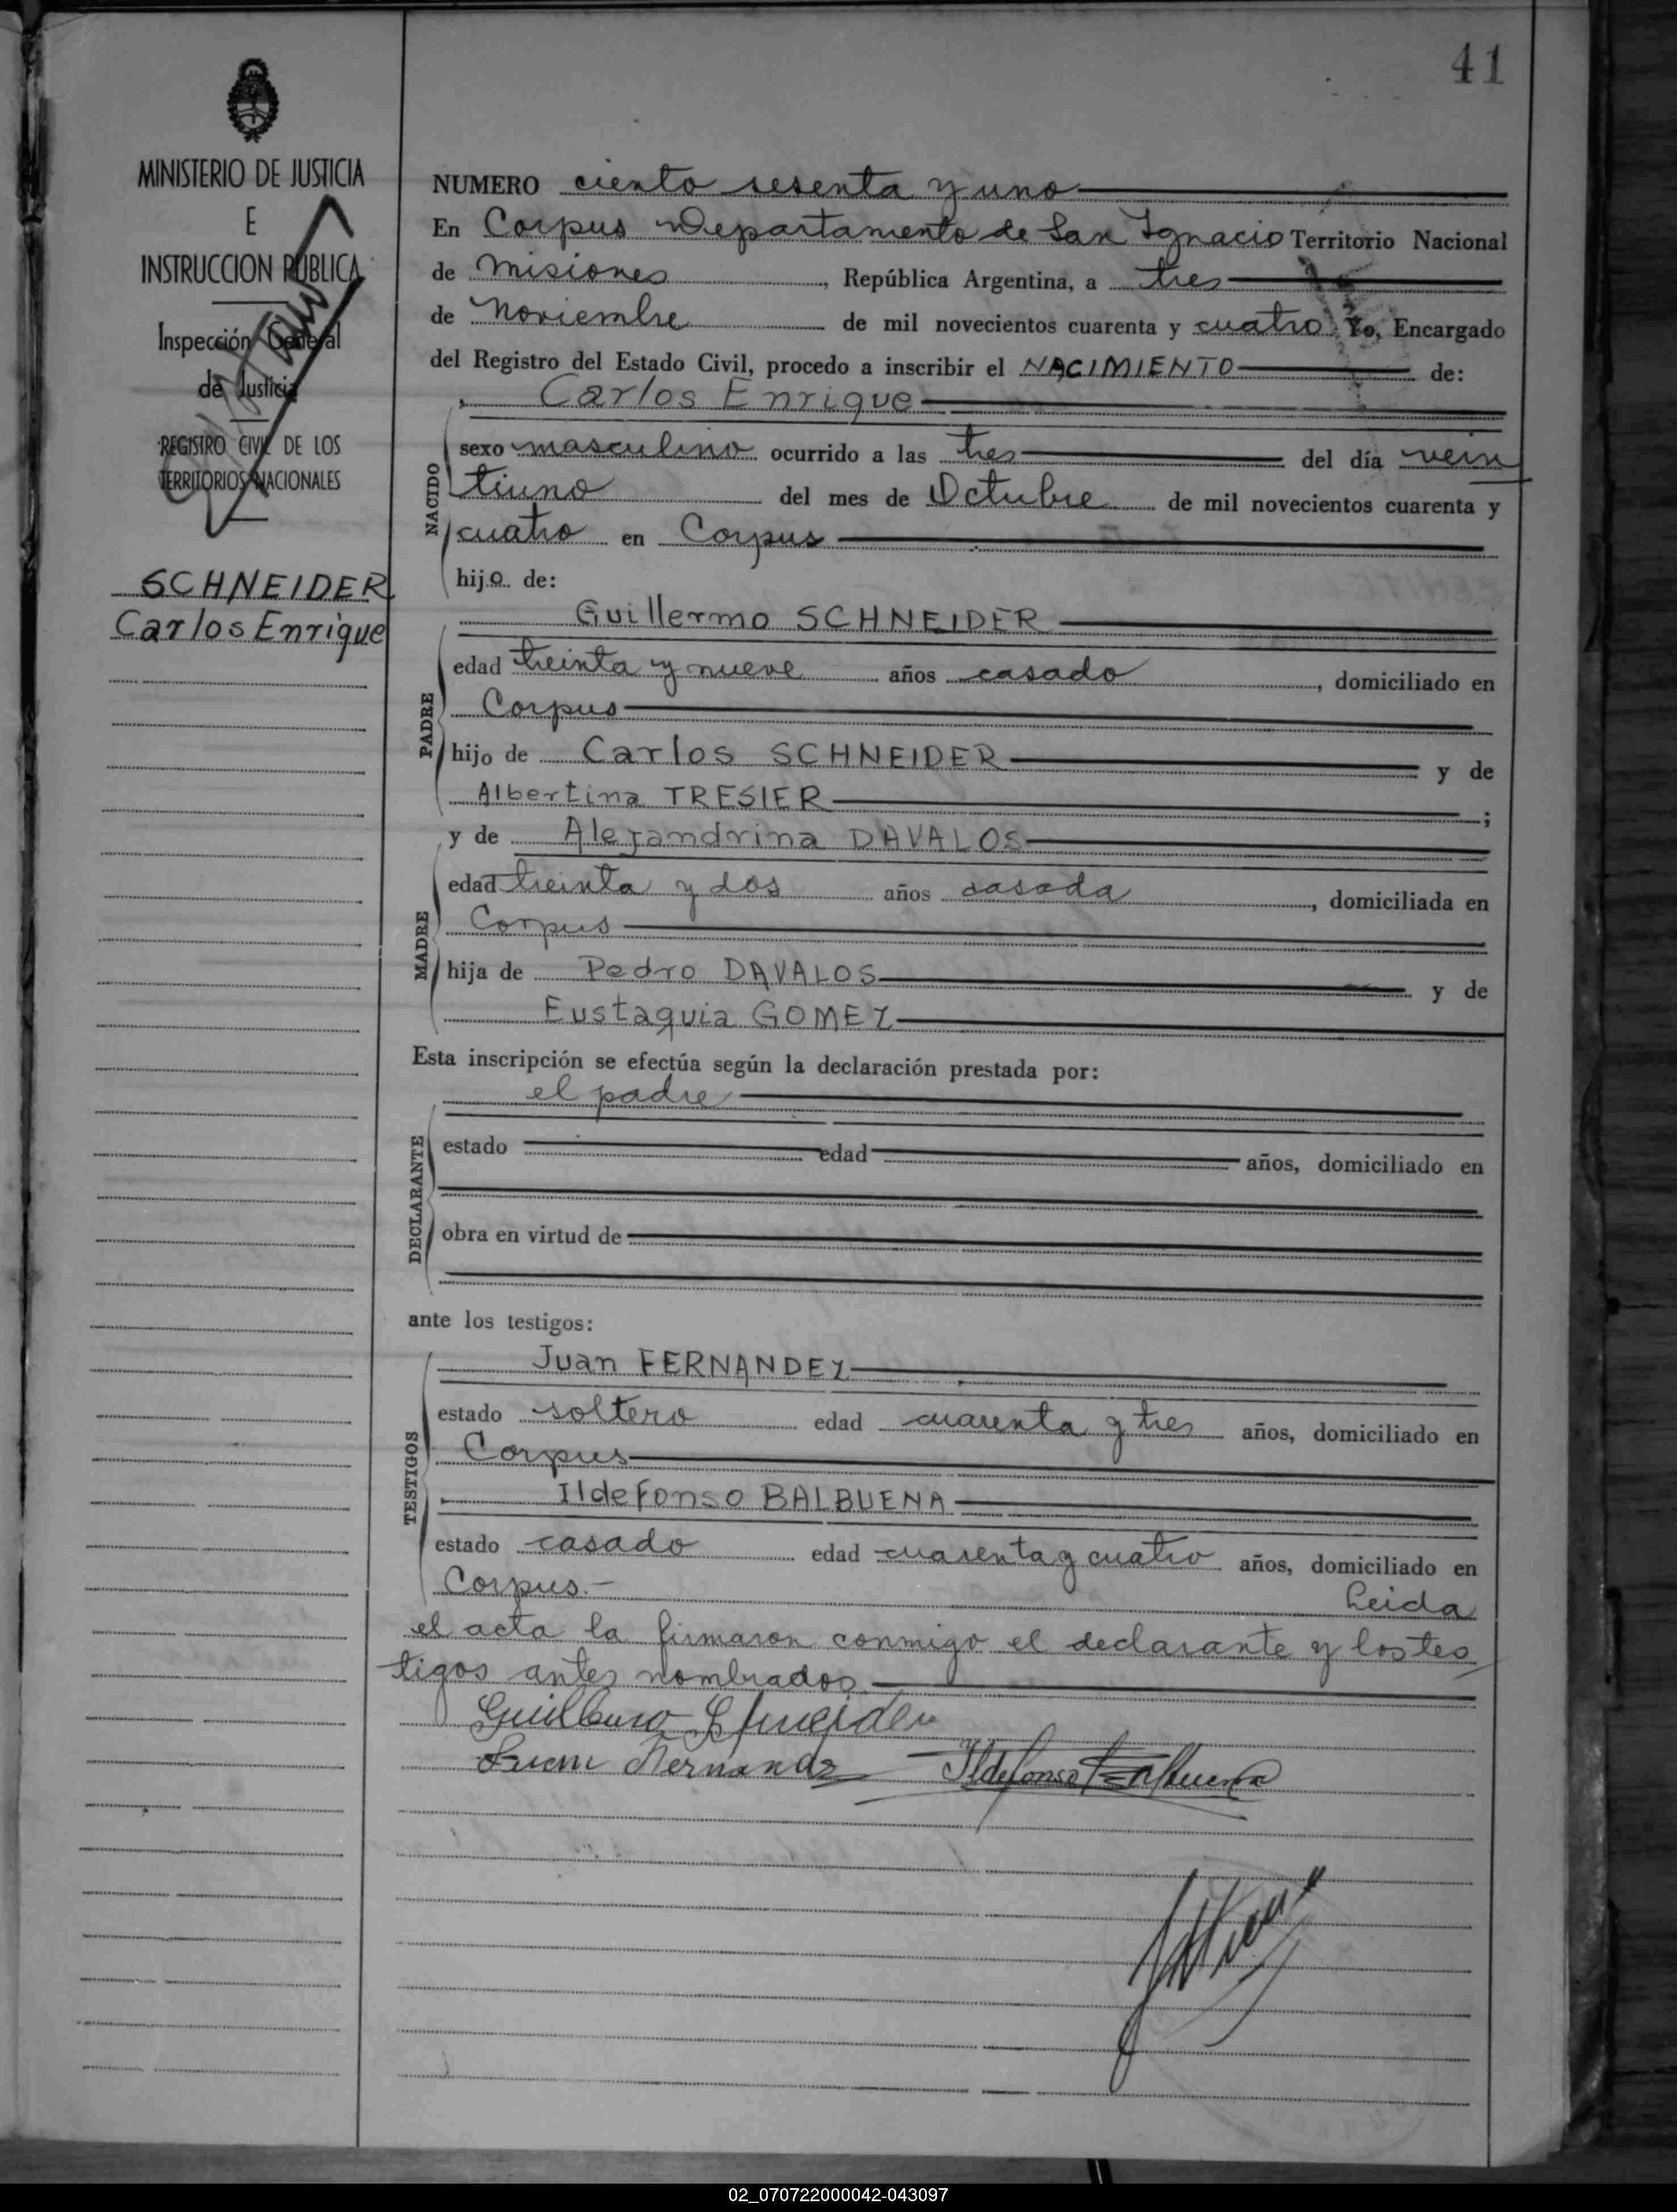 41
MINISTERIO DE JUSTICIA
E
INSTRUCCION PUBLICA
Inspección General
de Justicia
REGISTRO CIVIL DE LOS
TERRITORIOS NACIONALES
SCHNEIDER
Carlos Enrique
NUMERO ciento sesenta y uno
En Corpus Departamento de San Ignacio Territorio Nacional
de Misiones, República Argentina, a tres
de Noviembre de mil novecientos cuarenta y cuatro Yo, Encargado
del Registro del Estado Civil, procedo a inscribir el NACIMIENTO de:
Carlos Enrique
NACIDO
sexo masculino ocurrido a las tres del día vein
tiuno del mes de Octubre de mil novecientos cuarenta y
cuatro en Corpus
hijo de:
Guillermo SCHNEIDER
PADRE
edad treinta y nueve años casado, domiciliado en
Corpus
hijo de Carlos SCHNEIDER y de
Albertina TRESIER;
y de Alejandrina DAVALOS
MADRE
edad treinta y dos años casada, domiciliada en
Corpus
hija de Pedro DAVALOS y de
Eustaquia GOMEZ
Esta inscripción se efectúa según la declaración prestada por:
el padre
DECLARANTE
estado edad años, domiciliado en
obra en virtud de
ante los testigos:
Juan FERNANDEZ
TESTIGOS
estado soltero edad cuarenta y tres años, domiciliado en
Corpus
Ildefonso BALBUENA
estado casado edad cuarenta y cuatro años, domiciliado en
Corpus.- Leida
el acta la firmaron conmigo el declarante y los tes
tigos antes nombrados.
Guillermo Schneider
Juan Fernandz Ildefonso Balbuena
02_070722000042-043097